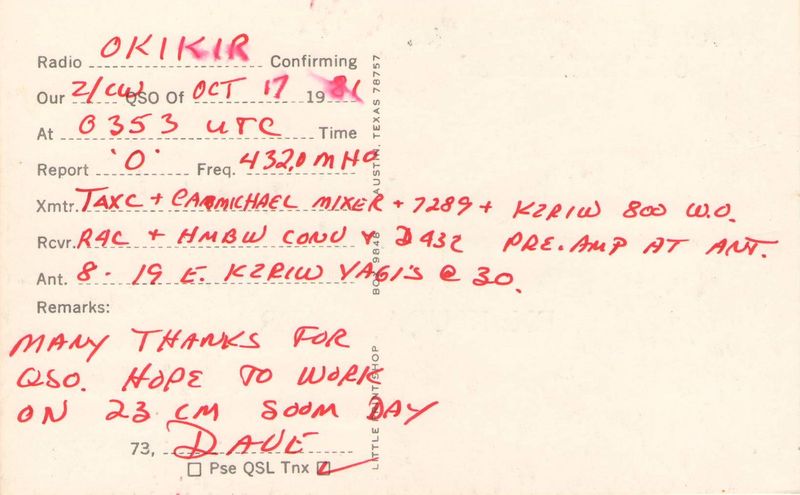 Radio OK1KIR Confirming
Our 2/CW QSO Of OCT 17 1981
At 0353 UTC Time
Report 'O' Freq. 432.0 MHO
Xmtr. TAXC + CARMICHAEL MIXER + 7289 + K2RIW 800 W.O.
Rcvr. R4C + HMBW CONV & D432 PRE.AMP AT ANT.
Ant. 8 - 19 E. K2RIW YAGI'S @ 30.
Remarks:
MANY THANKS FOR
QSO. HOPE TO WORK
ON 23 CM SOOM DAY
73, DAVE
Pse QSL Tnx
LITTLE PRINT SHOP BOX 9848 AUSTIN, TEXAS 78757